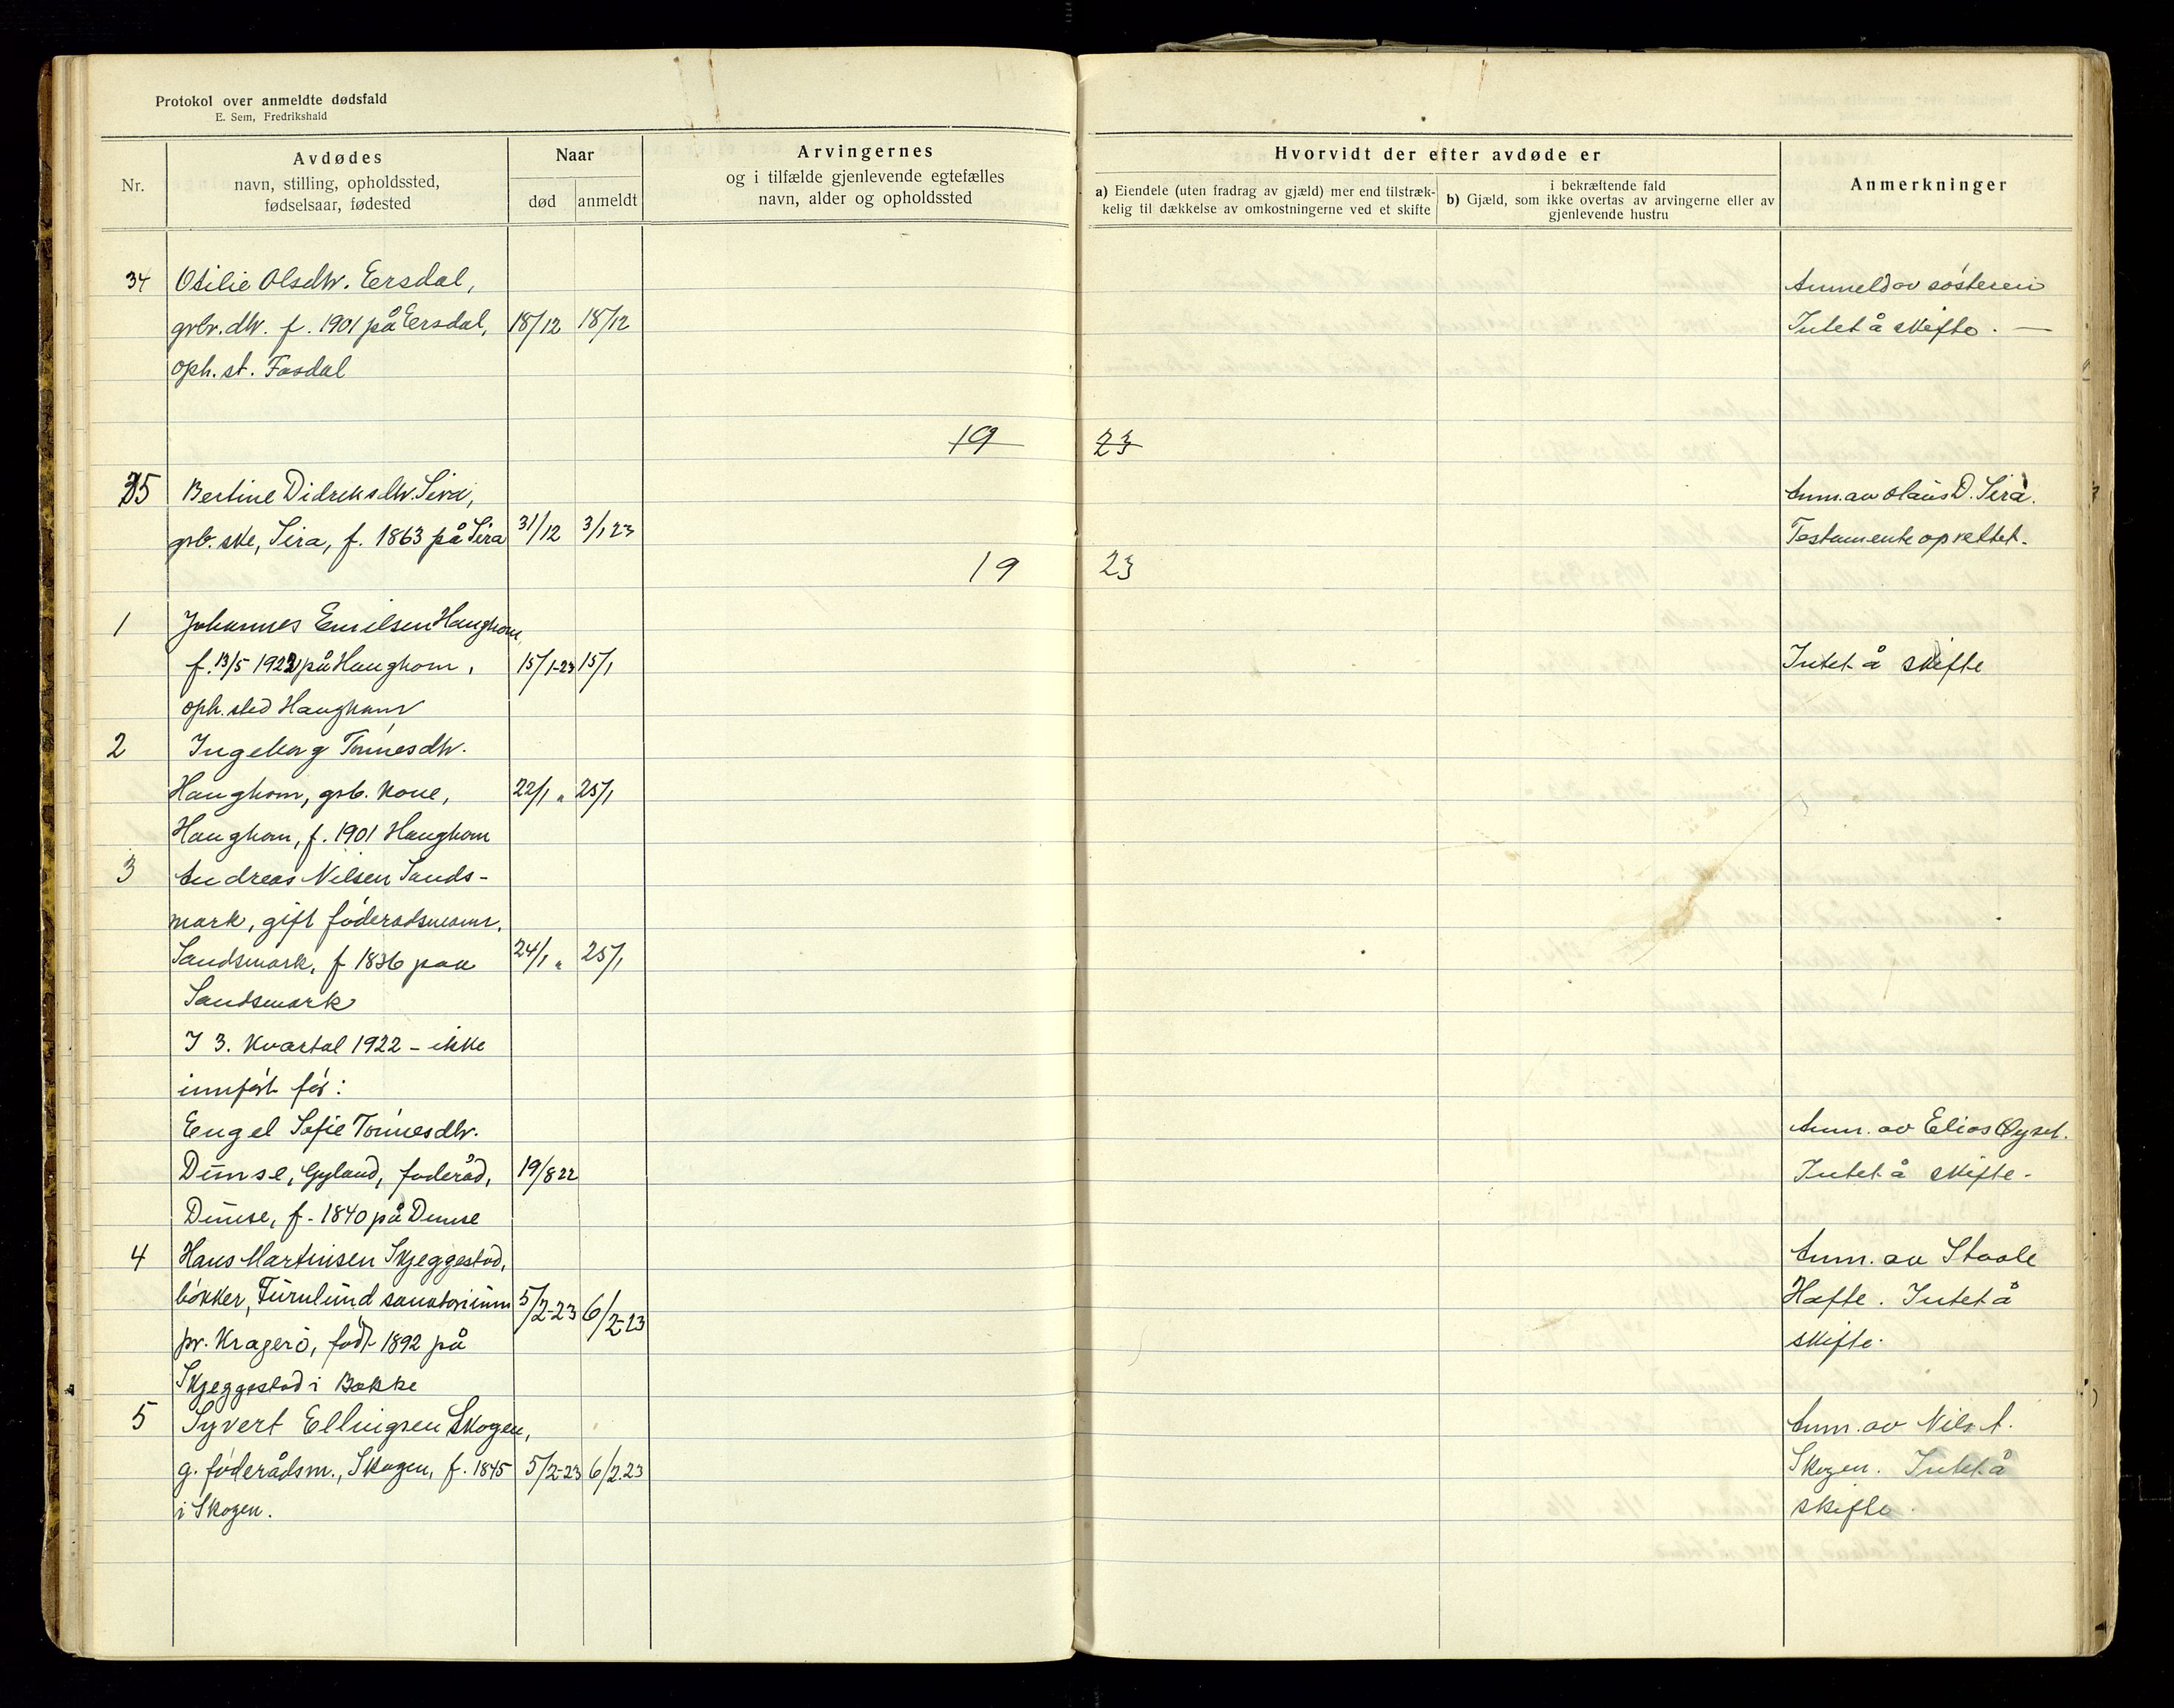 Protokol over anmeldte dødsfald
E. Sem, Fredrikshald
Nr.
Avdødes
navn, stilling, opholdssted,
fødselsaar, fødested
Naar
død
anmeldt
Arvingernes
og i tilfælde gjenlevende egtefælles
navn, alder og opholdssted
Hvorvidt der efter avdøde er
a) Eiendele (uten fradrag av gjæld) mer end tilstræk-
kelig til dækkelse av omkostningerne ved et skifte
i bekræftende fald
b) Gjæld, som ikke overtas av arvingerne eller av
gjenlevende hustru
Anmerkninger
34 Otilie Olsdtr. Eersdal, Anmeld av søsteren
grbr.dtr. f. 1901 på Eersdal, 18/12 18/12 Intet å skifte. —
oph.st. Fosdal
19 23
35 Bertine Didriksdtr. Sira, Anm. av Olaus D. Sira.
grb. ske, Sira, f. 1863 på Sira 31/12 3/1 23 Testamente oprettet.
19 23
1 Johannes Emilsen Haughom,
f. 13/5 1922 på Haughom, 15/1-23 15/1 Intet å skifte
oph. sted Haughom
2 Ingeborg Tønnesdtr.
Haughom, grb. kone, 22/1 " 25/1
Haughom, f. 1901 Haughom
3 Andreas Nilsen Sands-
mark, gift føderadsmann,
Sandsmark, f 1836 paa 24/1 " 25/1
Sandsmark
I 3. Kvartal 1922 - ikke
innført før:
Engel Sofie Tønnesdtr. Anm. av Elias Øyset.
Dunse, Gyland, foderåd, 19/8 22 Intet å skifte.
Dunse, f. 1840 på Dunse
4 Hans Martinsen Skjeggestad, Anm. av Staale
bøkker, Furulund sanatorium 5/2-23 6/2-23 Hafte. Intet å
pr. Kragerø, født 1892 på skifte.
Skjeggestad i Bakke
5 Syvert Ellingsen Skogen, Anm. av Nils A.
g. føderådsm., Skogen, f. 1845 5/2-23 6/2.23 Skogen. Intet å
i Skogen. skifte.